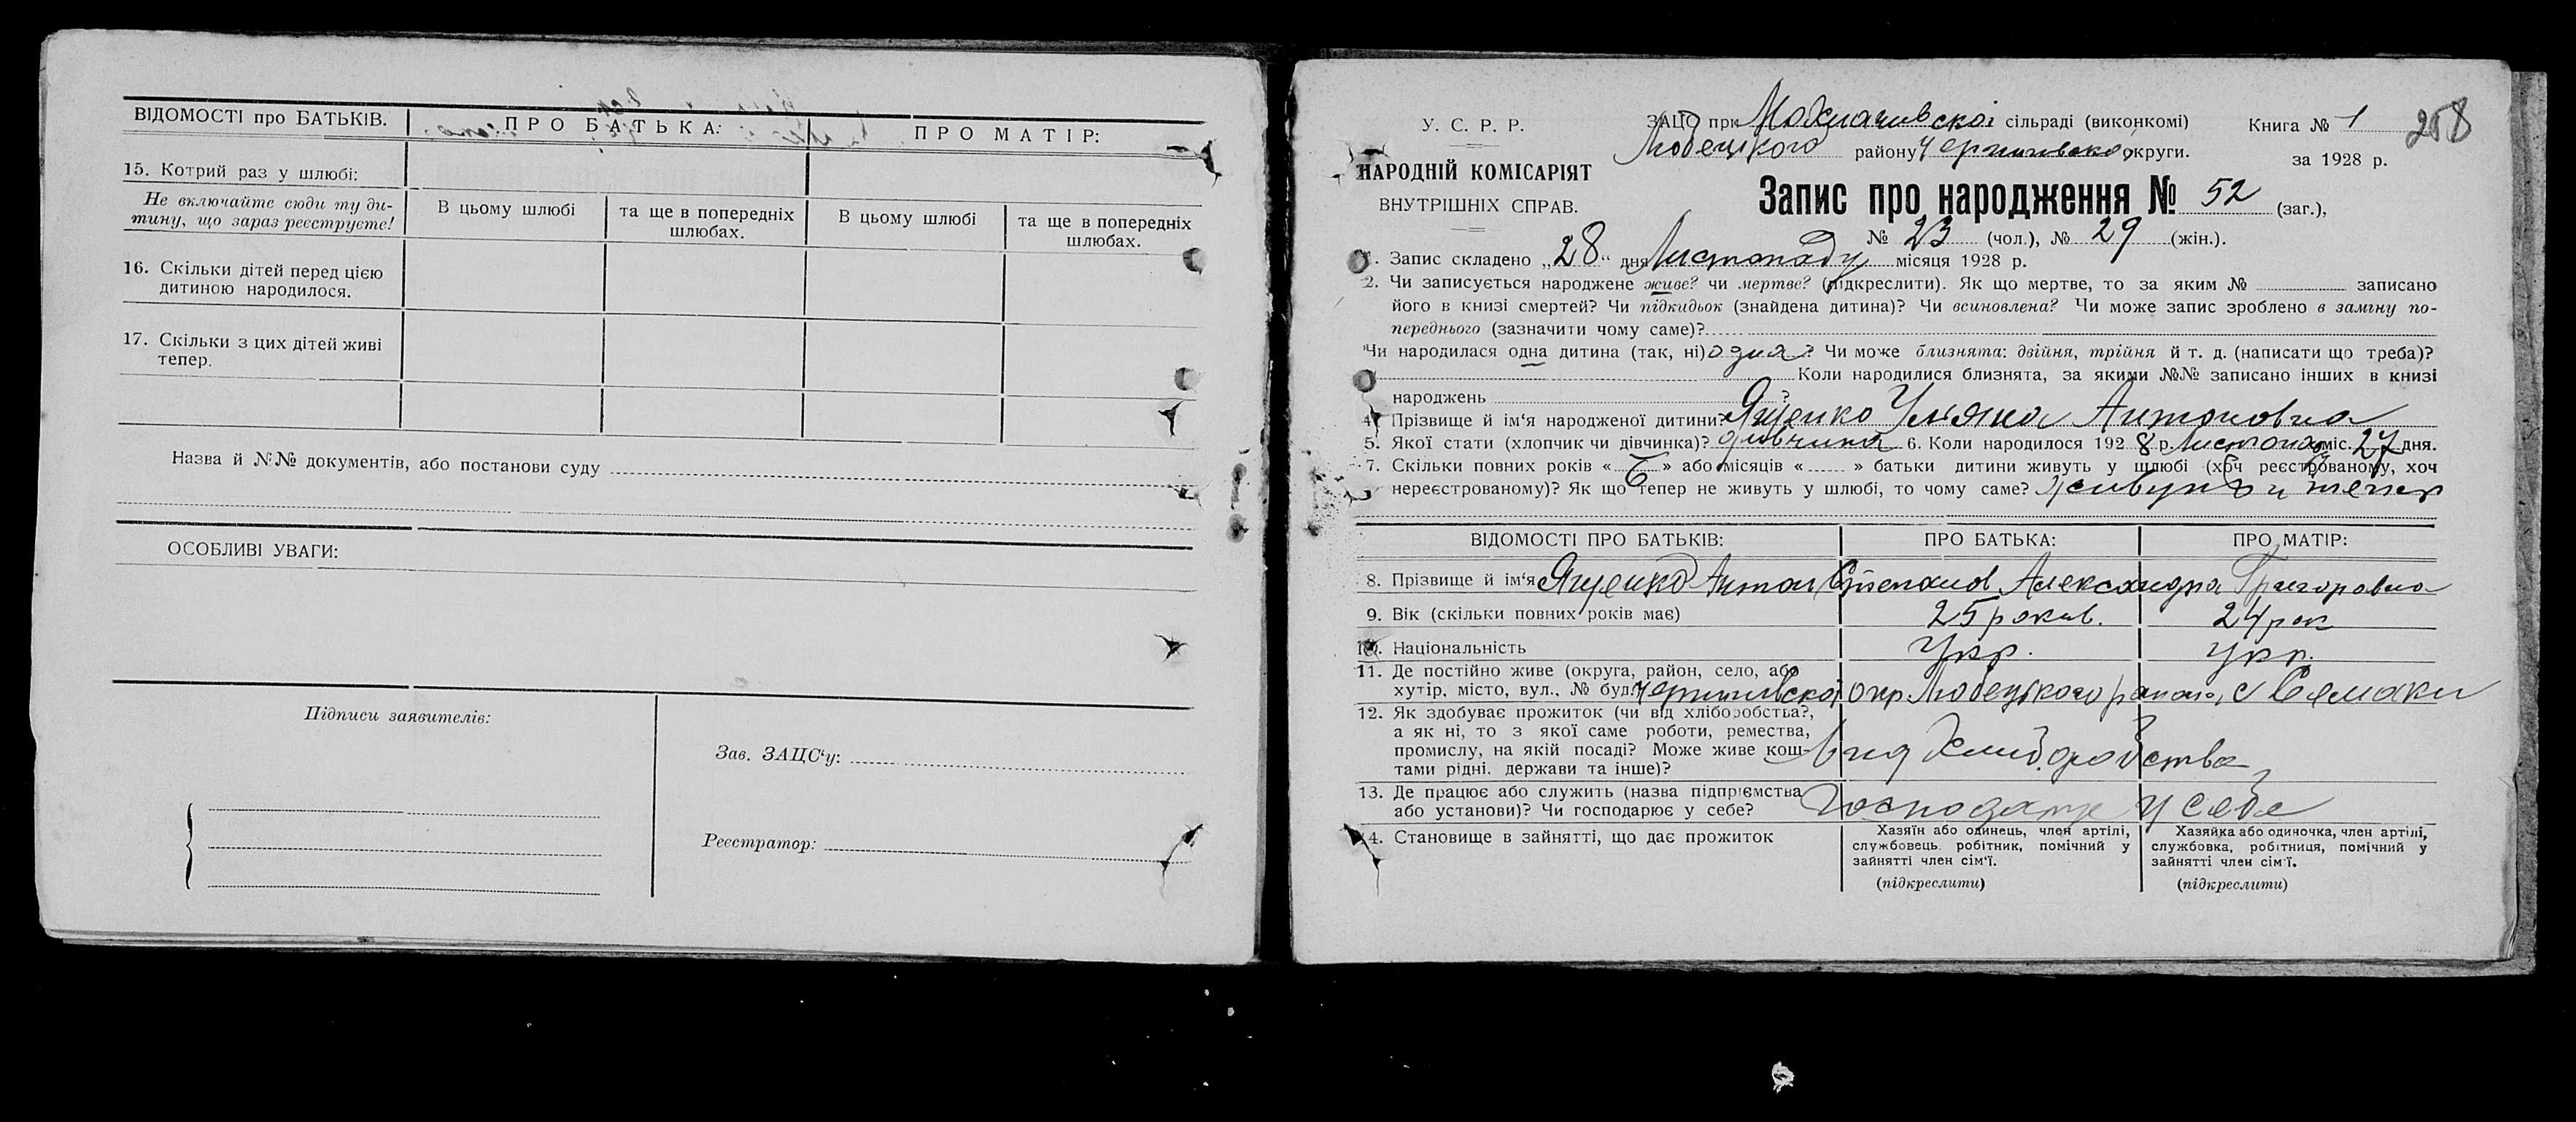 ВІДОМОСТІ про БАТЬКІВ.
ПРО БАТЬКА:
ПРО МАТІР:
15. Котрий раз у шлюбі:
Не включайте сюди ту ди-
тину, що зараз реєструєте!
В цьому шлюбі
та ще в попередніх
шлюбах.
В цьому шлюбі
та ще в попередніх
шлюбах.
16. Скільки дітей перед цією
дитиною народилося.
17. Скільки з цих дітей живі
тепер.
Назва й №№ документів, або постанови суду
ОСОБЛИВІ УВАГИ:
Підписи заявителів:
Зав. ЗАЦС‘у:
Реєстратор:
У. С. Р. Р.
НАРОДНІЙ КОМІСАРІЯТ
ВНУТРІШНІХ СПРАВ.
ЗАЦС при сільраді (виконкомі)
Любецького району Чернигівської округи.
Книга № 1
258
за 1928 р.
Запис про народження № 52 (заг.),
№ 23 (чол.), № 29 (жін.).
1. Запис складено „28“ дня Листопаду місяця 1928 р.
2. Чи записується народжене живе? чи мертве? (підкреслити). Як що мертве, то за яким № записано
його в книзі смертей? Чи підкидьок (знайдена дитина)? Чи всиновлена? Чи може запис зроблено в заміну по-
переднього (зазначити чому саме)?
Чи народилася одна дитина (так, ні) одна? Чи може близнята: двійня, трійня й т. д. (написати що треба)?
Коли народилися близнята, за якими №№ записано інших в книзі
народжень ?
4. Прізвище й ім‘я народженої дитини? Ященко Уляна Антоновна
5. Якої стати (хлопчик чи дівчинка)? дивчина 6. Коли народилося 1928 р. Листопад міс. 27 дня.
7. Скільки повних років « 6 » або місяців « » батьки дитини живуть у шлюбі (хоч реєстрованому, хоч
нереєстрованому)? Як що тепер не живуть у шлюбі, то чому саме? живуть и тепер
ВІДОМОСТІ ПРО БАТЬКІВ:
ПРО БАТЬКА:
ПРО МАТІР:
8. Прізвище й ім‘я Ященко Антон Степанов Александра Григоровна
9. Вік (скільки повних років має) 25 роков. 24 рок
10. Національність Укр. укр.
11. Де постійно живе (округа, район, село, або
хутір, місто, вул., № буд.) Чернигівской окр Любецького району, с Семаки
12. Як здобуває прожиток (чи від хліборобства?,
а як ні, то з якої саме роботи, ремества,
промислу, на якій посаді? Може живе кош-
тами рідні, держави та інше)?
вид хлиборобства
13. Де працює або служить (назва підприємства
або установи)? Чи господарює у себе?
Господарує у себе
14. Становище в зайнятті, що дає прожиток
Хазяїн або одинець, член артілі,
службовець, робітник, помічний у
зайнятті член сім‘ї.
(підкреслити)
Хазяйка або одиночка, член артілі,
службовка, робітниця, помічний у
зайнятті член сім‘ї.
(підкреслити)